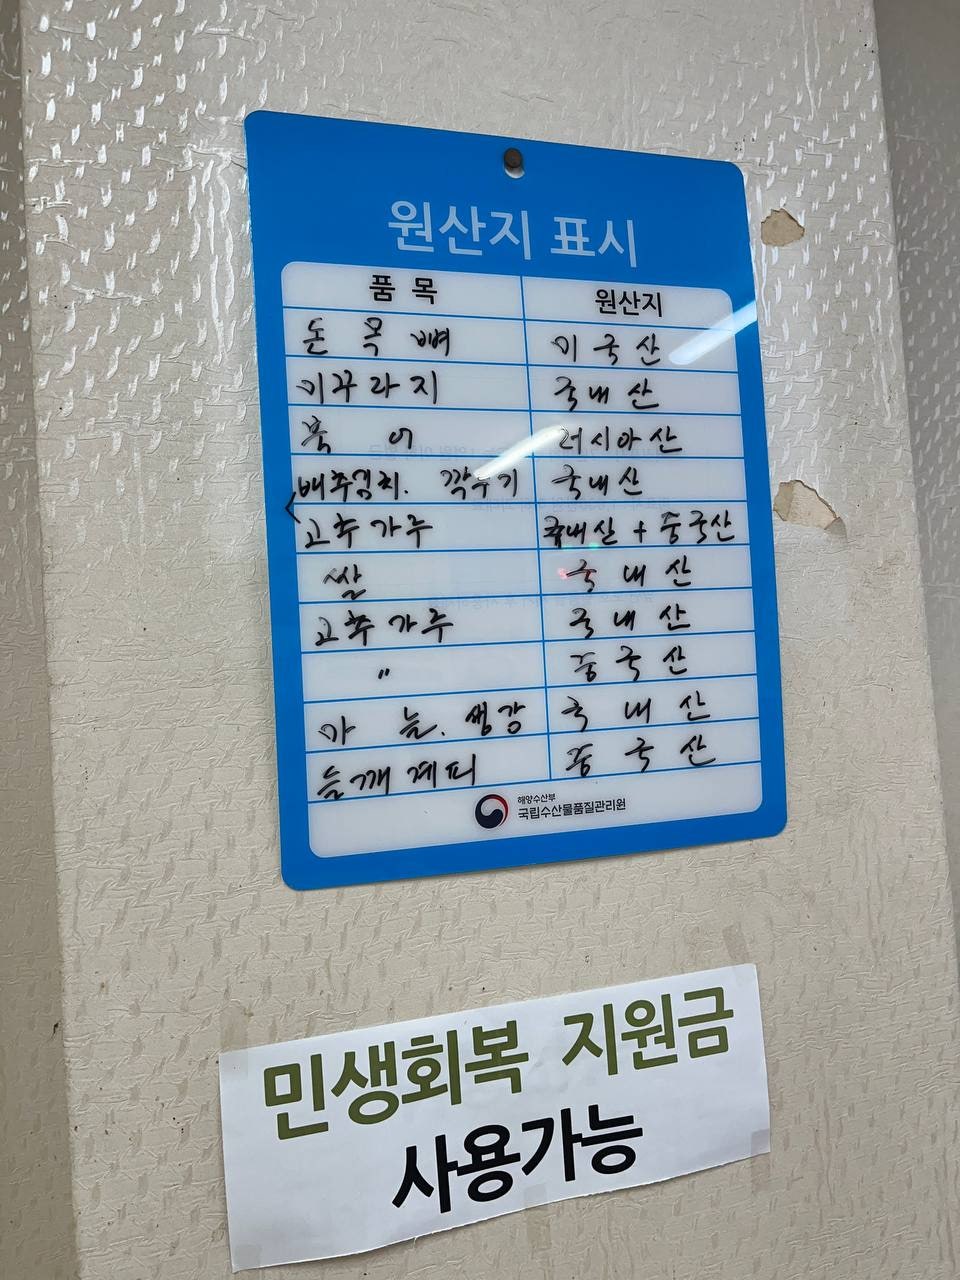 원산지 표시
품 목 원산지
돈 목 뼈 미국산
미꾸라지 국내산
홍어 러시아산
배추김치. 깍두기 국내산
고추가루 국내산 + 중국산
쌀 국내산
고추가루 국내산
" 중국산
마늘. 생강 국내산
들깨 계피 중국산
해양수산부
국립수산물품질관리원
민생회복 지원금
사용가능